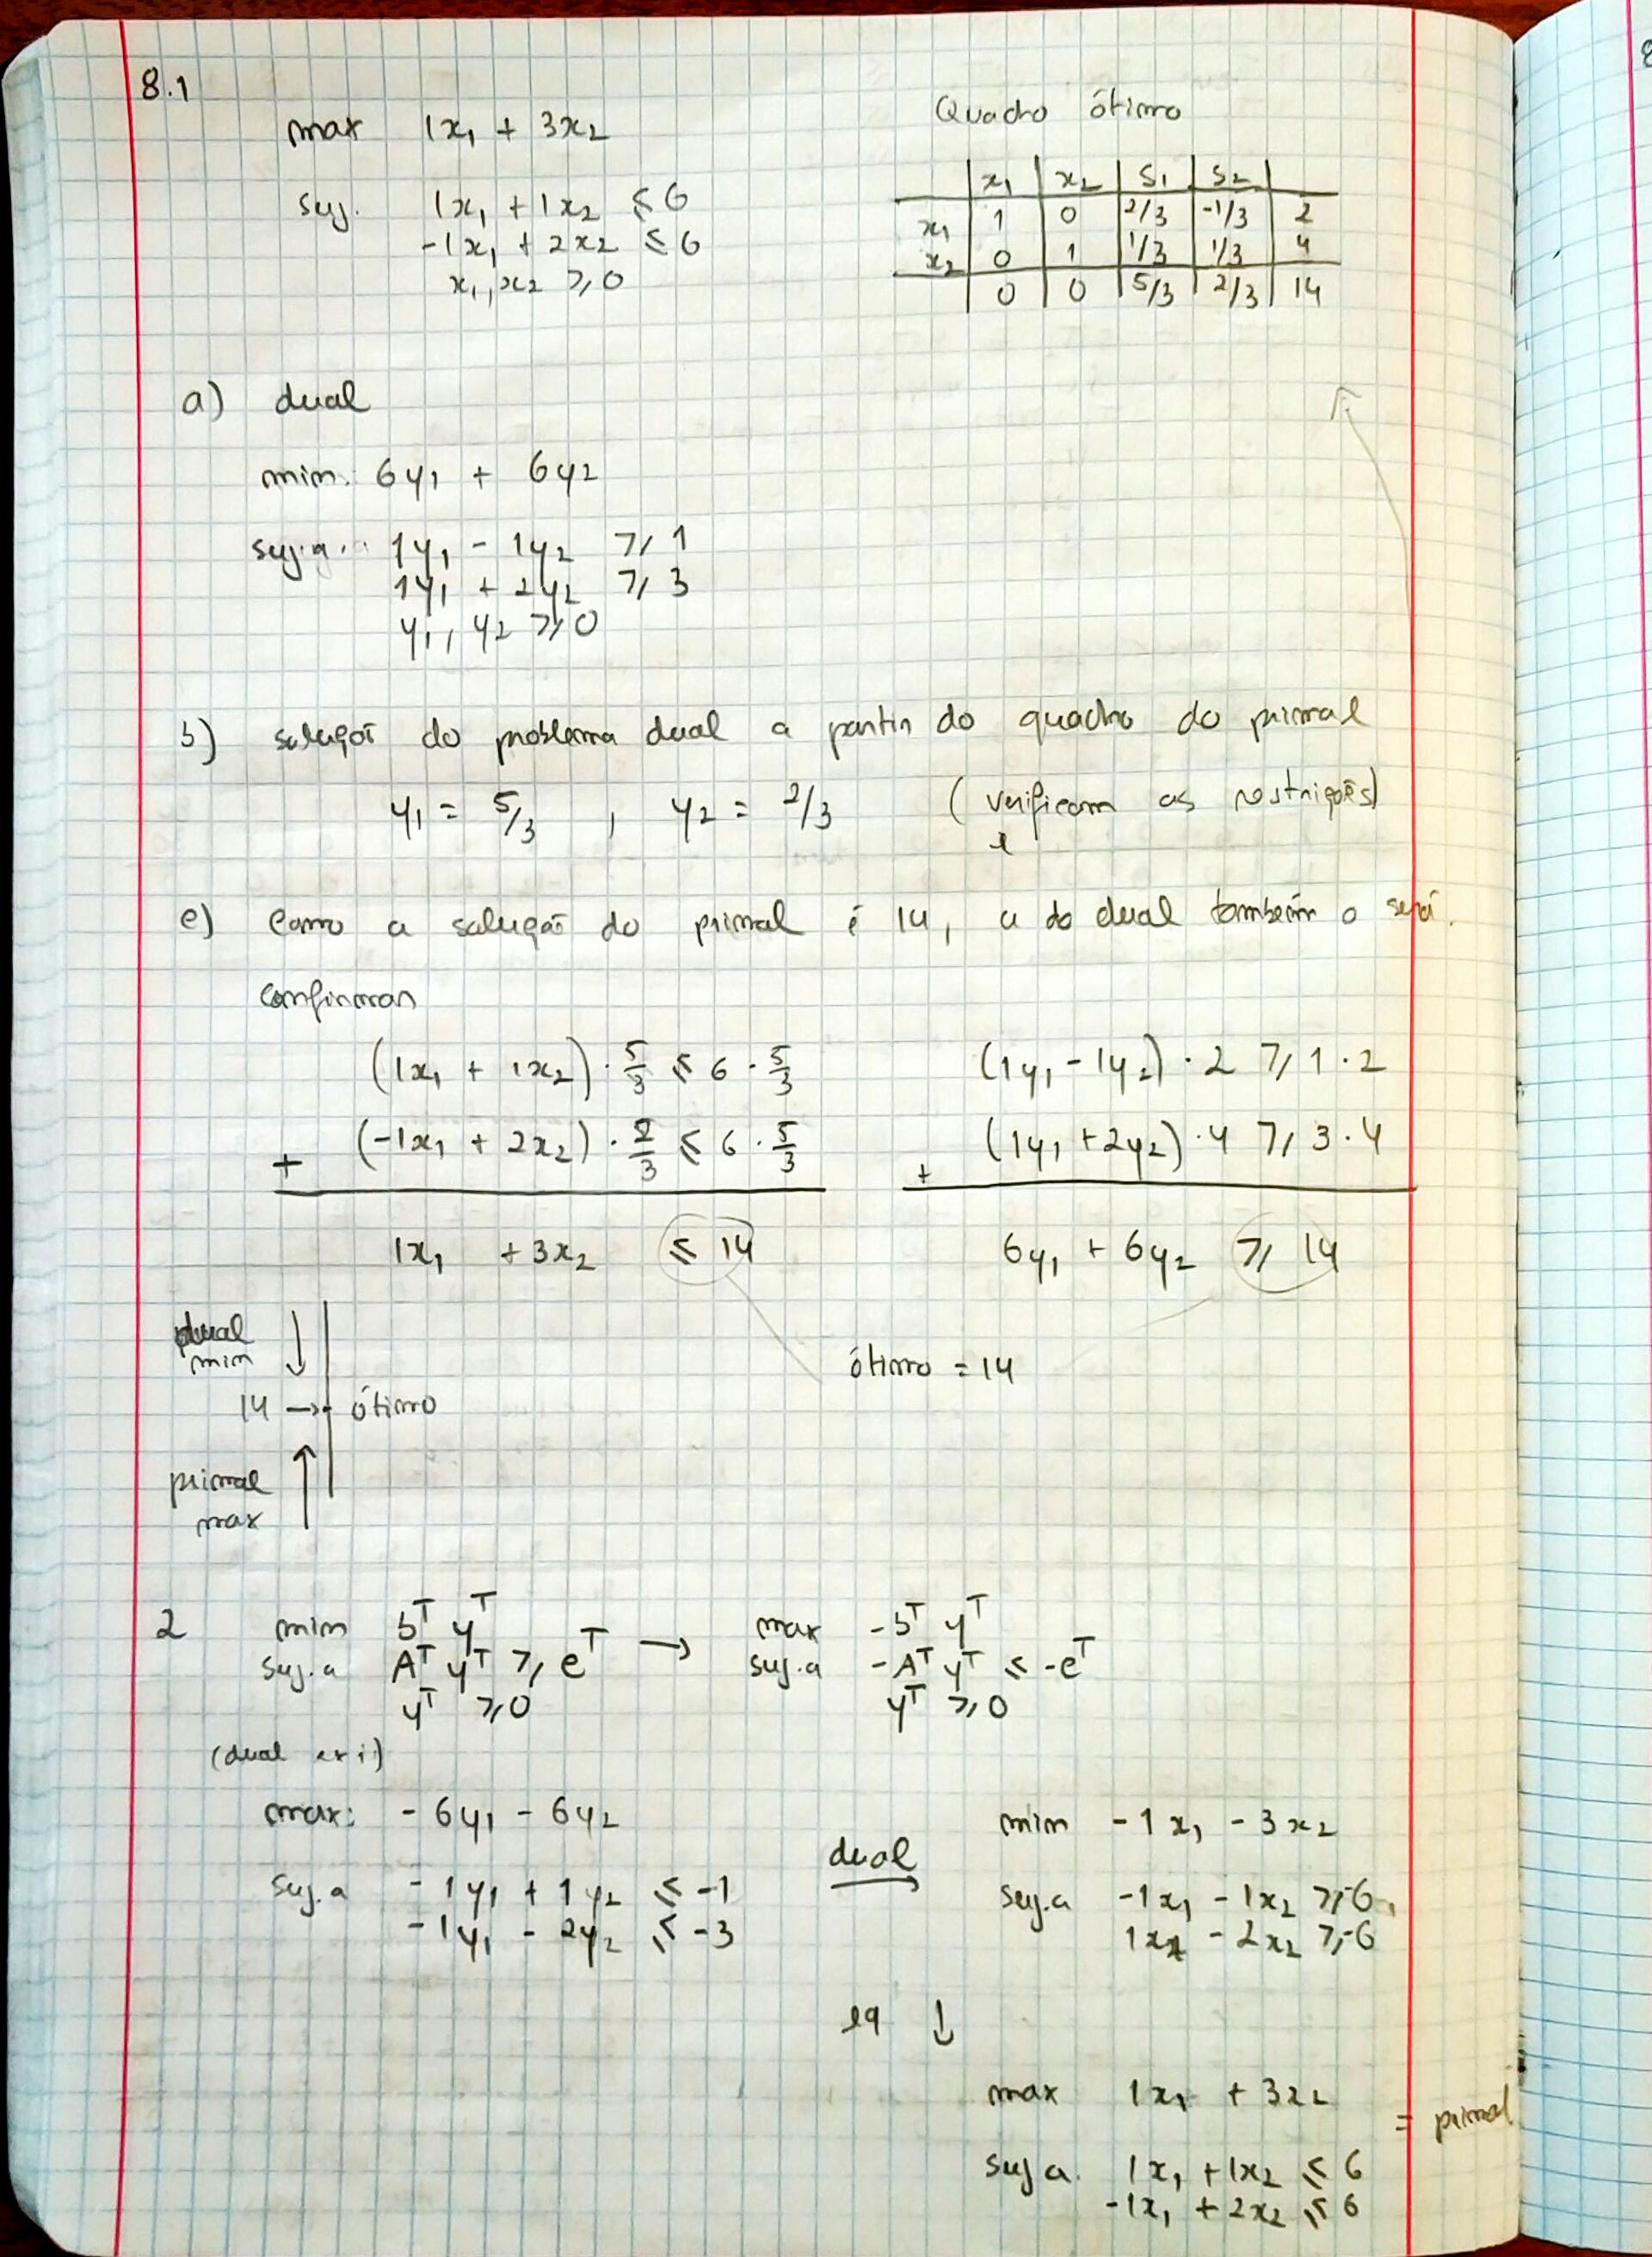 8.1
max 1x₁ + 3x₂
suj. 1x₁ + 1x₂ ≤ 6
-1x₁ + 2x₂ ≤ 6
x₁, x₂ ≥ 0
Quadro ótimo
x₁ x₂ S₁ S₂
x₁ 1 0 2/3 -1/3 2
x₂ 0 1 1/3 1/3 4
0 0 5/3 2/3 14
a) dual
min: 6y₁ + 6y₂
suj.a. 1y₁ - 1y₂ ≥ 1
1y₁ + 2y₂ ≥ 3
y₁, y₂ ≥ 0
b) solução do problema dual a partir do quadro do primal
y₁ = 5/3 , y₂ = 2/3 (verificam as restrições)
c) Como a solução do primal é 14, a do dual também o será.
Confirmar
(1x₁ + 1x₂) · 5/3 ≤ 6 · 5/3
+ (-1x₁ + 2x₂) · 2/3 ≤ 6 · 5/3
1x₁ + 3x₂ ≤ 14
(1y₁ - 1y₂) · 2 ≥ 1 · 2
+ (1y₁ + 2y₂) · 4 ≥ 3 · 4
6y₁ + 6y₂ ≥ 14
dual
min ↓
14 → ótimo
primal ↑
max
ótimo = 14
2 min bᵀ yᵀ → max -bᵀ yᵀ
suj.a Aᵀ yᵀ ≥ cᵀ suj.a -Aᵀ yᵀ ≤ -cᵀ
yᵀ ≥ 0 yᵀ ≥ 0
(dual ex 1)
max: - 6y₁ - 6y₂
suj.a - 1y₁ + 1y₂ ≤ -1
-1y₁ - 2y₂ ≤ -3
dual →
min -1x₁ - 3x₂
suj.a -1x₁ - 1x₂ ≥ -6
1x₁ - 2x₂ ≥ -6
eq ↓
max 1x₁ + 3x₂
= primal
suj a. 1x₁ + 1x₂ ≤ 6
-1x₁ + 2x₂ ≤ 6